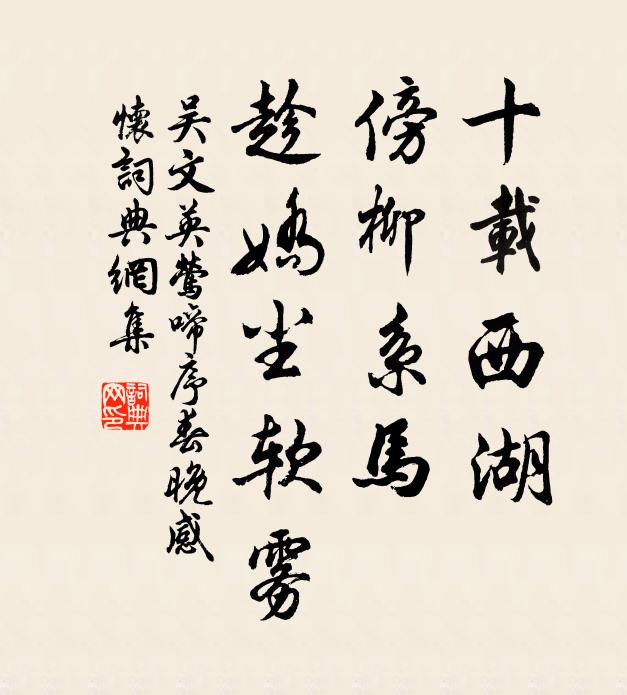 十載西湖
傍柳系馬
趁嬌尘軟雾
吴文英鶯啼序春晚感
懷詞典網集
詞典
网印